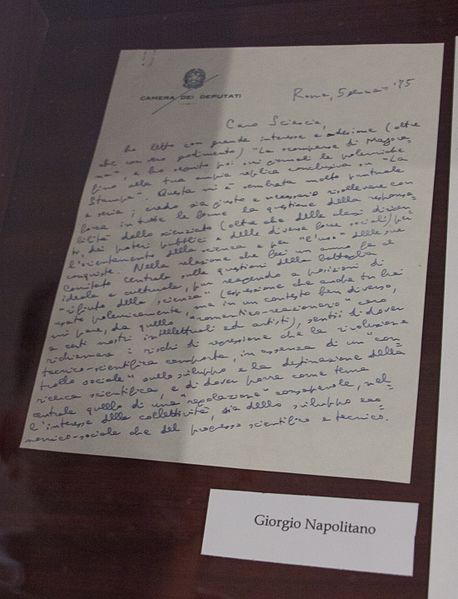 CAMERA DEI DEPUTATI
Roma, 5 '75
Caro Sciascia,
ho letto con grande interesse e adesione (oltre
che con vero godimento) "La scomparsa di Majora=
na", e ho seguito poi sui giornali le polemiche
fino alla tua ampia replica conclusiva su "La
Stampa". Questa mi è sembrata molto puntuale
e seria; credo sia giusto e necessario sollevare con
forza in tutte le forme la questione della responsa=
bilità dello scienziato (oltre che delle classi dirigen=
ti, dei poteri pubblici e delle diverse forze sociali) per
l'orientamento della scienza e per "l'uso" delle sue
conquiste. Nella relazione che feci un anno fa al
Comitato centrale sulle questioni della battaglia
ideale e culturale, pur reagendo a posizioni di
"rifiuto della scienza" (espressione che anche tu hai
usato polemicamente ma in un contesto ben diverso,
mi pare, da quello "romantico-reazionario" caro
a certi nostri intellettuali ed artisti), sentii di dover
richiamare i rischi di oppressione che la rivoluzione
tecnico-scientifica comporta, in assenza di un "con=
trollo sociale" sullo sviluppo e la destinazione della
ricerca scientifica, e di dover porre come tema
centrale quello di una "regolazione" consapevole, nel=
l'interesse della collettività, sia dello sviluppo eco=
nomico-sociale che del progresso scientifico e tecnico.
Giorgio Napolitano